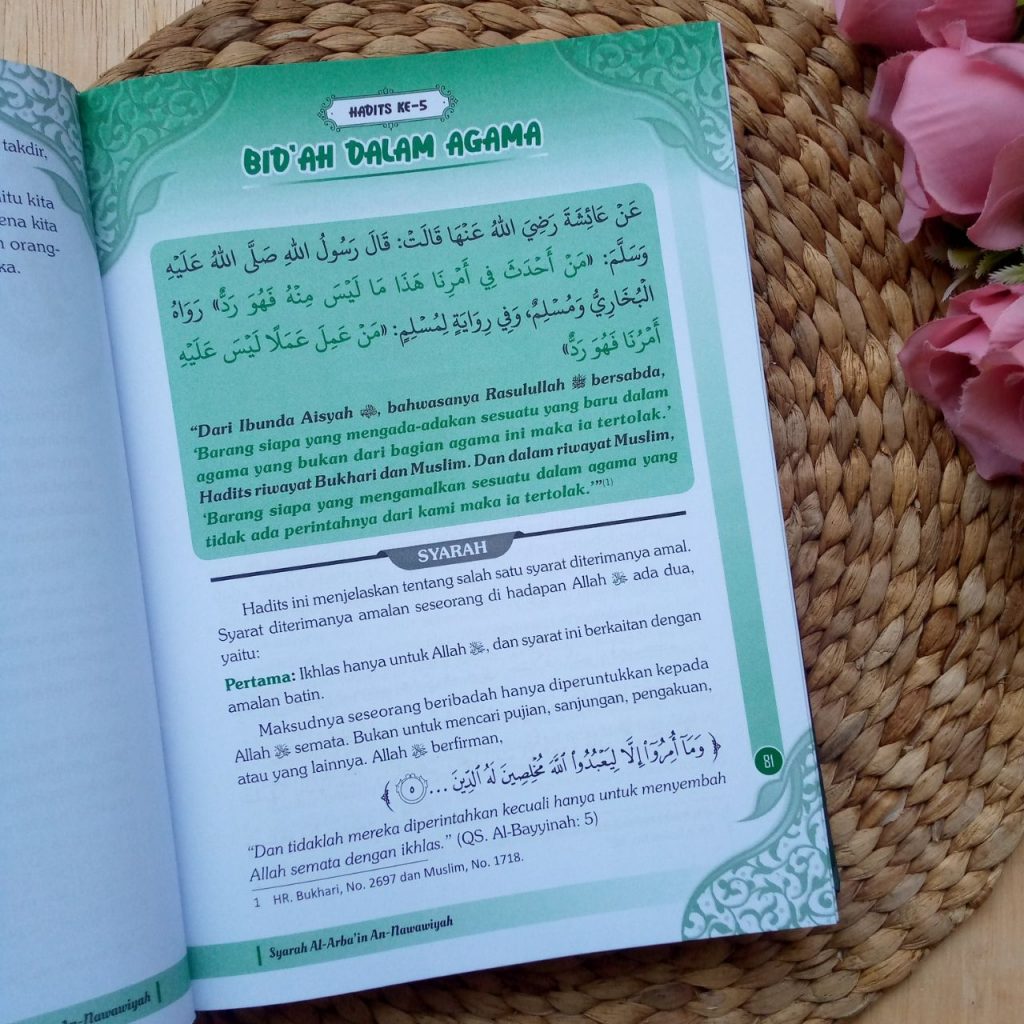 takdir,
itu kita
ena kita
n orang-
ka.
An-Nawawiyah
HADITS KE-5
BID'AH DALAM AGAMA
عَنْ عَائِشَةَ رَضِيَ اللهُ عَنْهَا قَالَتْ: قَالَ رَسُولُ اللهِ صَلَّى اللهُ عَلَيْهِ
وَسَلَّمَ: «مَنْ أَحْدَثَ فِي أَمْرِنَا هَذَا مَا لَيْسَ مِنْهُ فَهُوَ رَدٌّ» رَوَاهُ
الْبُخَارِيُّ وَمُسْلِمٌ، وَفِي رِوَايَةٍ لِمُسْلِمٍ: «مَنْ عَمِلَ عَمَلًا لَيْسَ عَلَيْهِ
أَمْرُنَا فَهُوَ رَدٌّ»
“Dari Ibunda Aisyah, bahwasanya Rasulullah ﷺ bersabda,
‘Barang siapa yang mengada-adakan sesuatu yang baru dalam
agama yang bukan dari bagian agama ini maka ia tertolak.’
Hadits riwayat Bukhari dan Muslim. Dan dalam riwayat Muslim,
‘Barang siapa yang mengamalkan sesuatu dalam agama yang
tidak ada perintahnya dari kami maka ia tertolak.’”(1)
SYARAH
Hadits ini menjelaskan tentang salah satu syarat diterimanya amal.
Syarat diterimanya amalan seseorang di hadapan Allah ﷻ ada dua,
yaitu:
Pertama: Ikhlas hanya untuk Allah ﷻ, dan syarat ini berkaitan dengan
amalan batin.
Maksudnya seseorang beribadah hanya diperuntukkan kepada
Allah ﷻ semata. Bukan untuk mencari pujian, sanjungan, pengakuan,
atau yang lainnya. Allah ﷻ berfirman,
﴿ وَمَآ أُمِرُوٓا۟ إِلَّا لِيَعْبُدُوا۟ ٱللَّهَ مُخْلِصِينَ لَهُ ٱلدِّينَ ... ٥ ﴾
“Dan tidaklah mereka diperintahkan kecuali hanya untuk menyembah
Allah semata dengan ikhlas.” (QS. Al-Bayyinah: 5)
1 HR. Bukhari, No. 2697 dan Muslim, No. 1718.
Syarah Al-Arba'in An-Nawawiyah
81